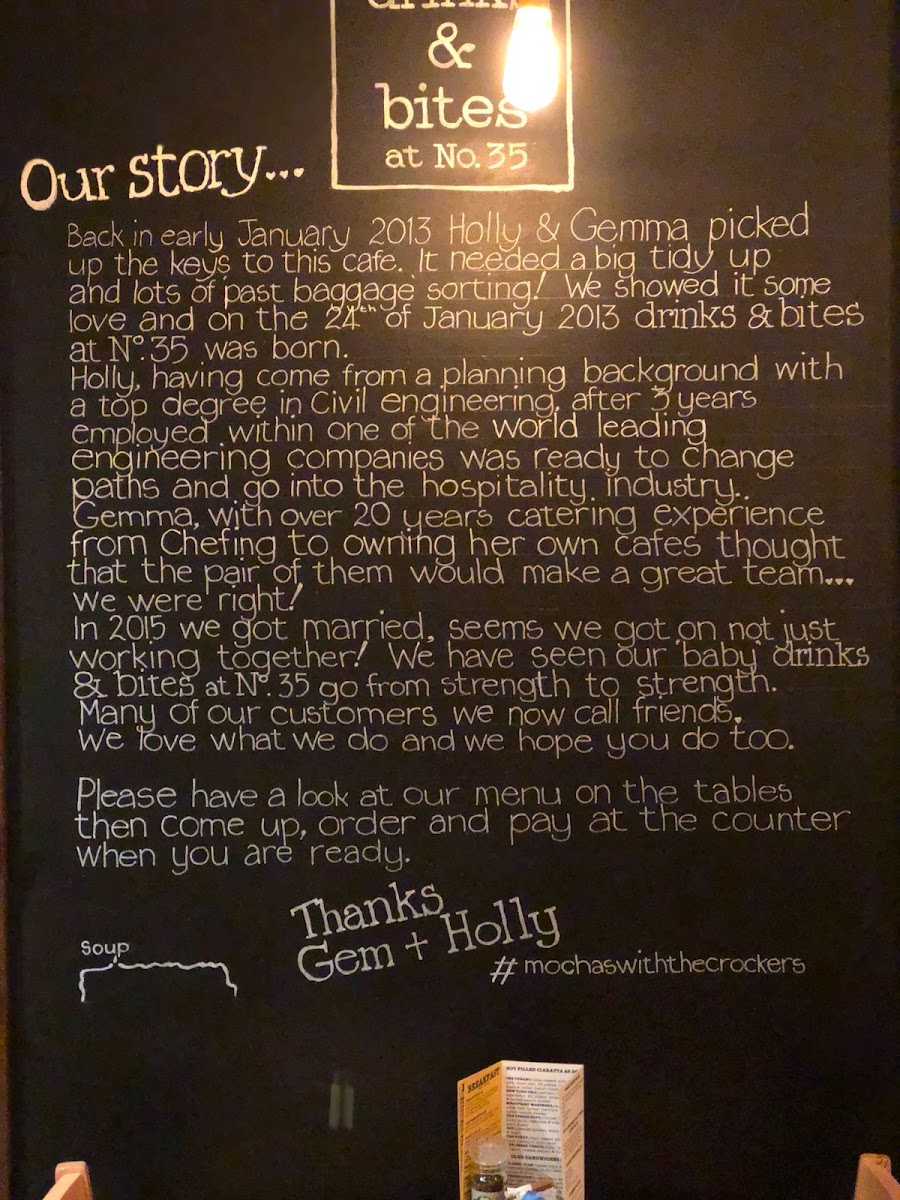 drinks
&
bites
at No. 35
Our story...
Back in early January 2013 Holly & Gemma picked
up the keys to this cafe. It needed a big tidy up
and lots of past baggage sorting! We showed it some
love and on the 24th of January 2013 drinks & bites
at Nº. 35 was born.
Holly, having come from a planning background with
a top degree in Civil engineering, after 3 years
employed within one of the world leading
engineering companies was ready to change
paths and go into the hospitality industry..
Gemma, with over 20 years catering experience
from Chefing to owning her own cafes thought
that the pair of them would make a great team...
we were right!
In 2015 we got married, seems we got on not just
working together! We have seen our 'baby' drinks
& bites at Nº. 35 go from strength to strength.
Many of our customers we now call friends.
We love what we do and we hope you do too.
Please have a look at our menu on the tables
then come up, order and pay at the counter
when you are ready.
Thanks
Gem + Holly
#mochaswiththecrockers
Soup
BREAKFAST
HOT FILLED CIABATTA